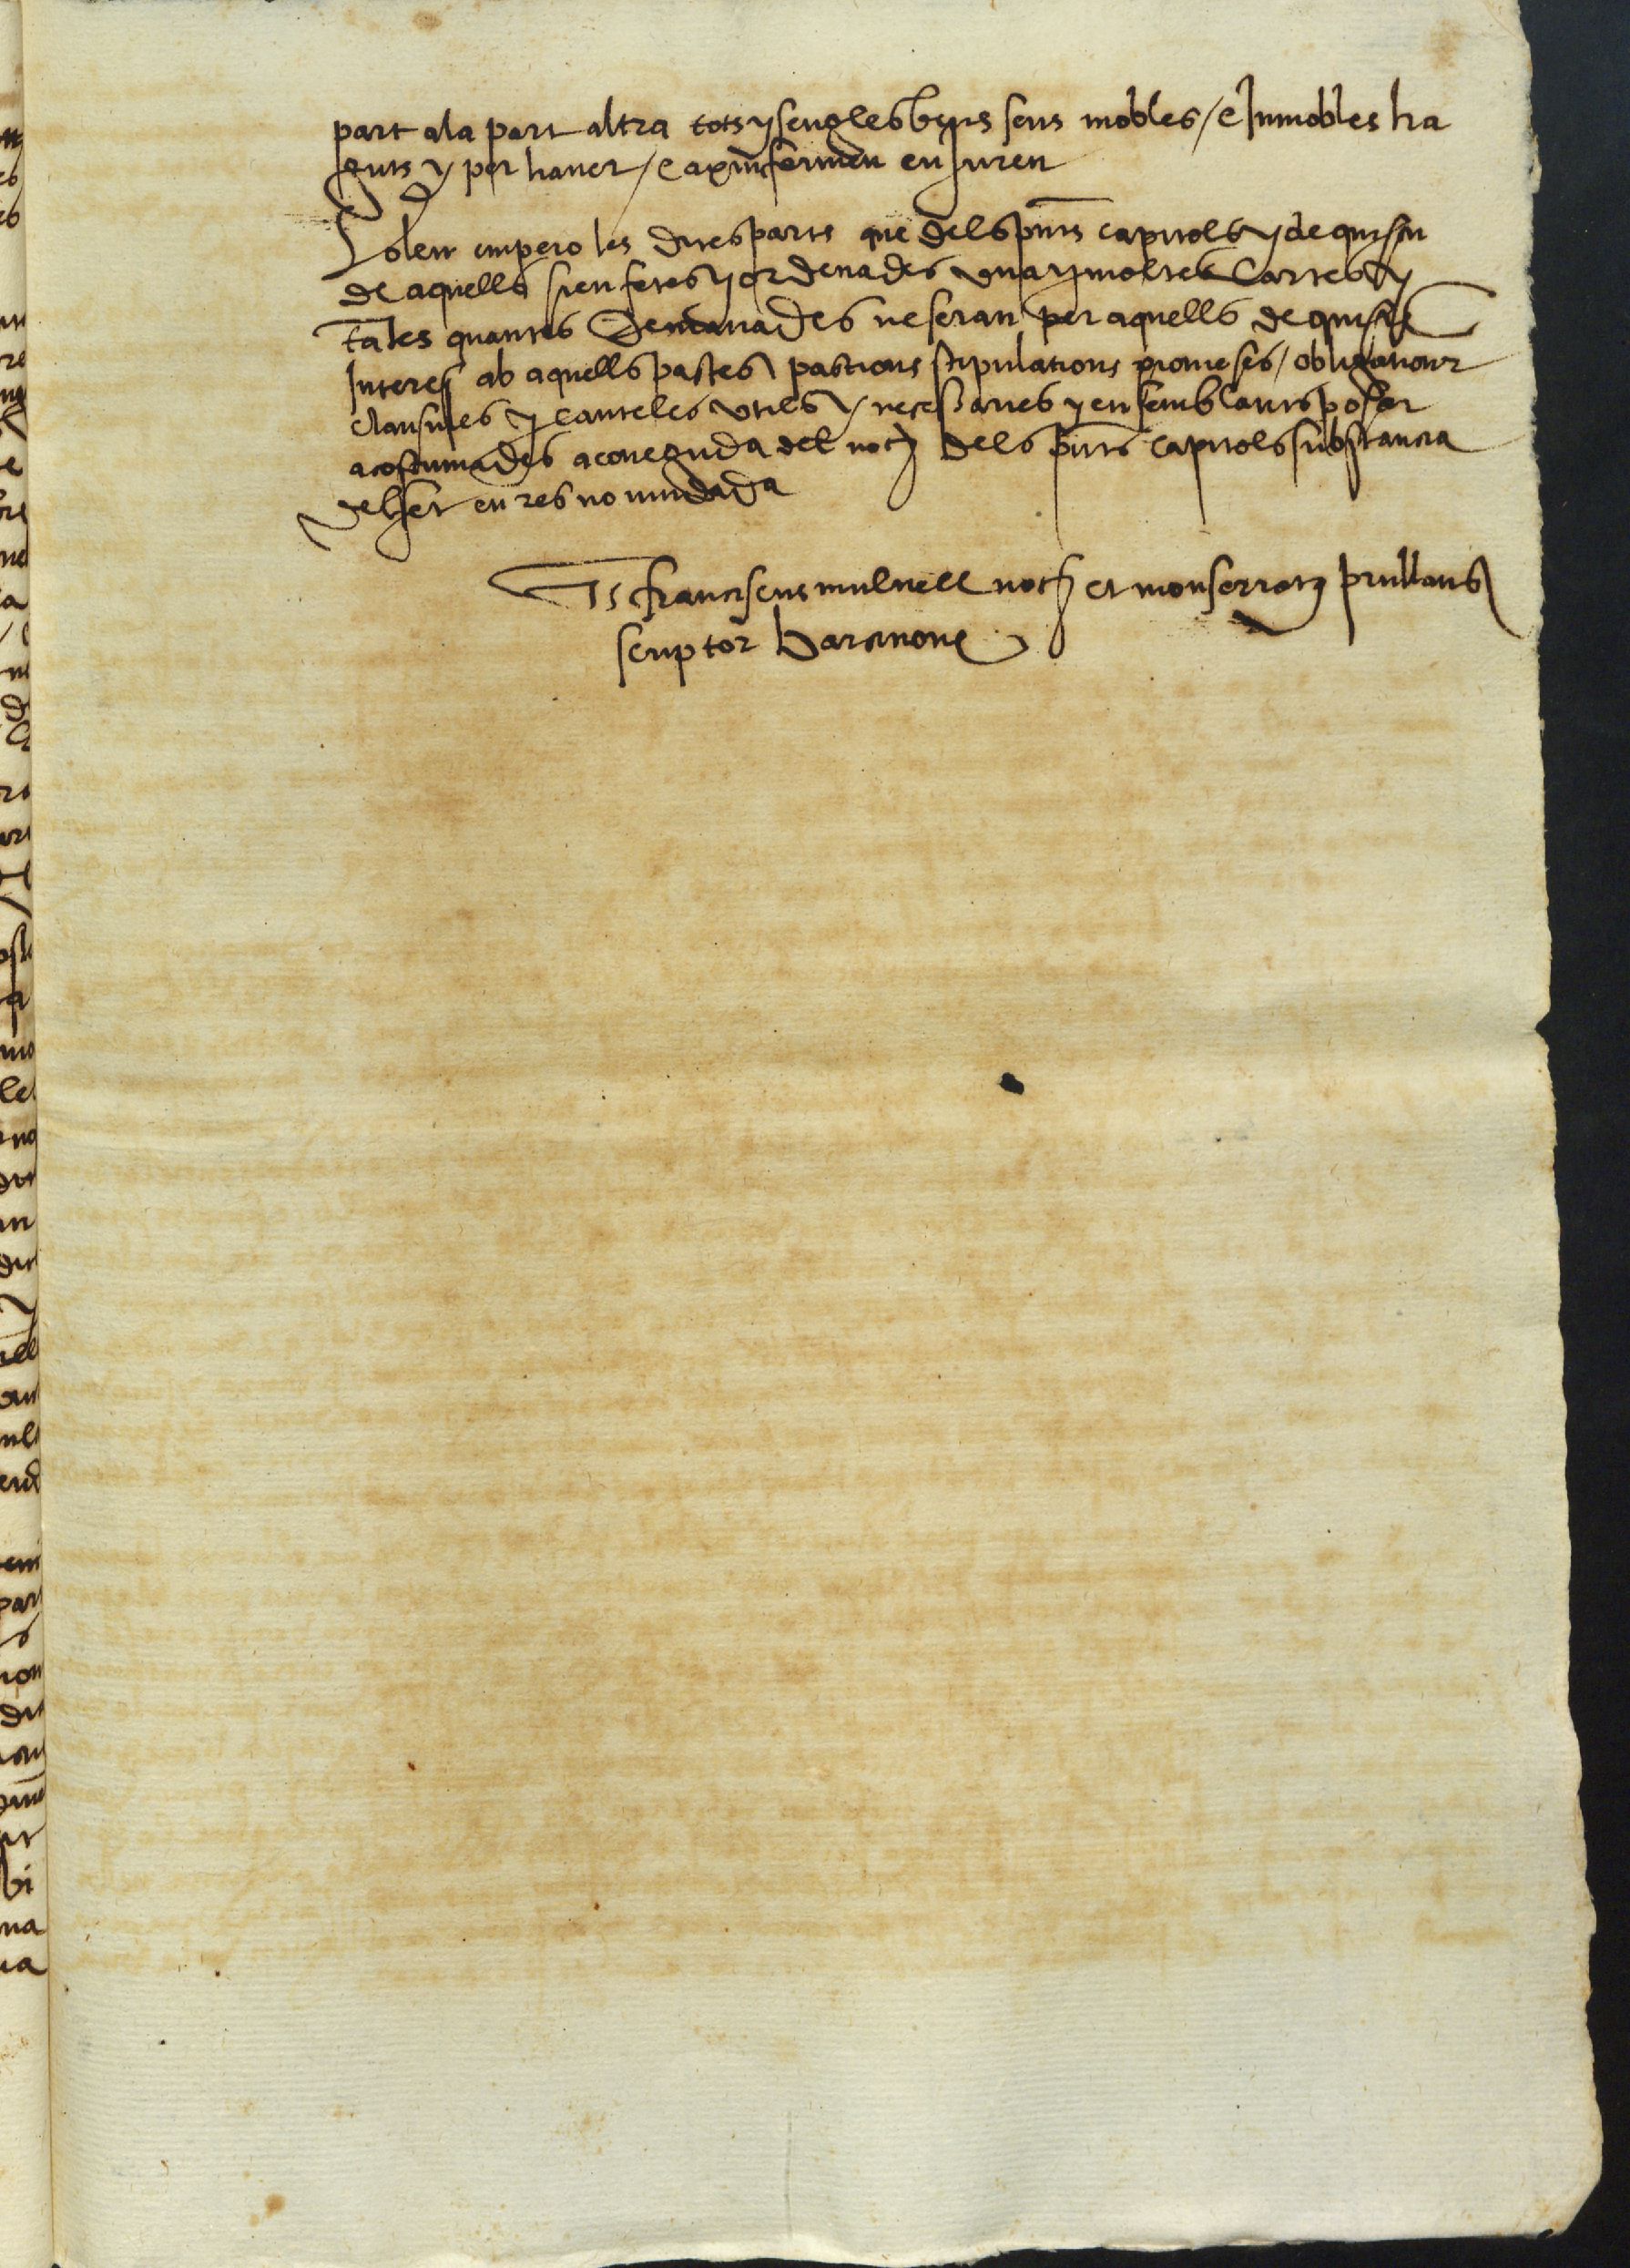 part ala part altra tots y sengles bens seus mobles / e Inmobles ha
guts y per haver / e axi u fermen en Juren
Volen empero les dites parts que dels pnts capitols y de quiscu
de aquells sien fetes y ordenades una y moltes Cartes y
tantes quantes Demanades ne seran per aquells de qui sie
Interes ab aquells pactes pactions stipulations promeses / obligations
clausules y cauteles utils y necessaries y en semblants posar
acostumades a coneguda del not dels pnts capitols substancia
del fet en res no mudada
Ts franciscus mulnell not et monserratus prullans
scriptor barcinone